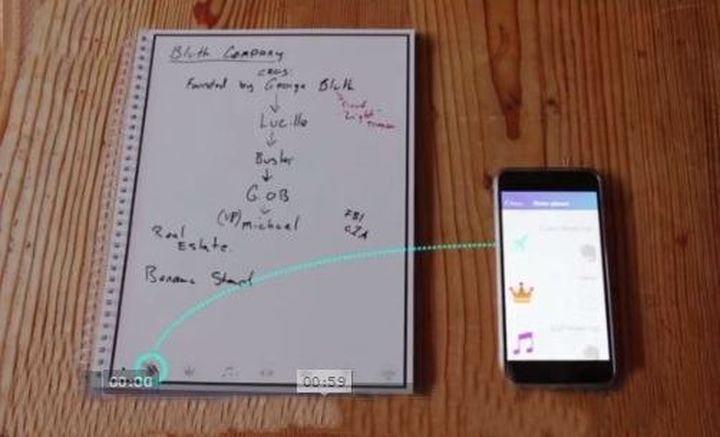 Bluth Company
CEOS:
Founded by George Bluth
Lucille
Buster
G.OB
(VP) michael
FBI
Real
Estate.
Banana Stand
00:00
00:59